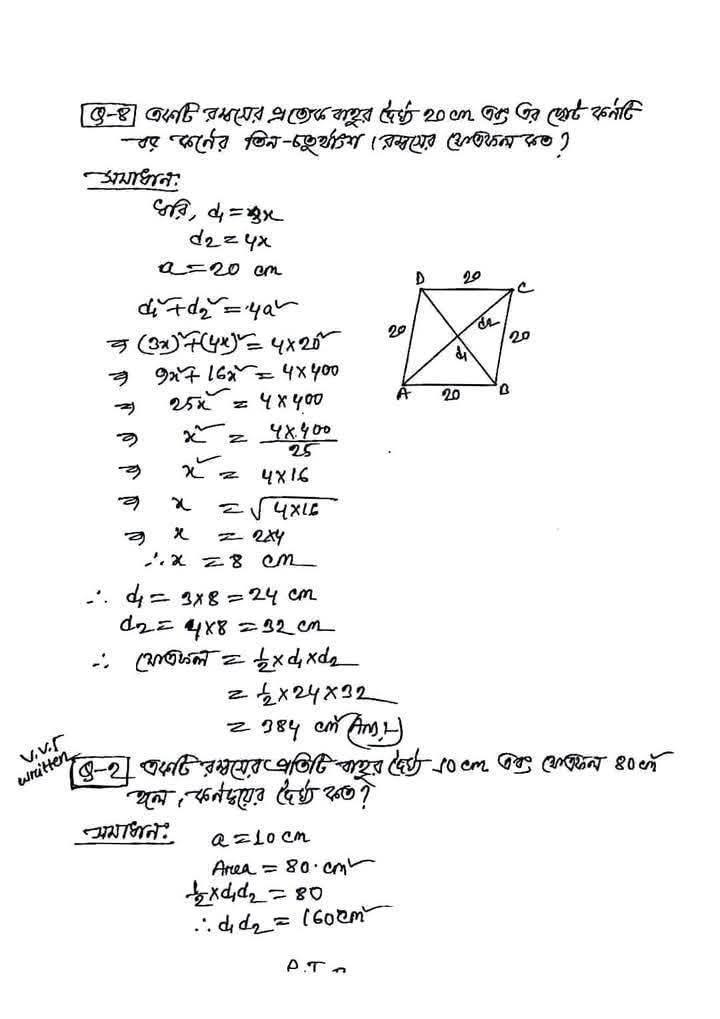 Q-8 একটি রম্বসের প্রত্যেক বাহুর দৈর্ঘ্য 20 cm এবং এর ছোট কর্ণটি
বড় কর্ণের তিন-চতুর্থাংশ। রম্বসের ক্ষেত্রফল কত?
সমাধান:
ধরি, d₁ = 3x
d₂ = 4x
a = 20 cm
d₁² + d₂² = 4a²
⇒ (3x)² + (4x)² = 4×20²
⇒ 9x² + 16x² = 4×400
⇒ 25x² = 4×400
⇒ x² = 4×400/25
⇒ x² = 4×16
⇒ x = √4×16
⇒ x = 2×4
∴ x = 8 cm
D 20 C
20 d₂ 20
d₁
A 20 B
∴ d₁ = 3×8 = 24 cm
d₂ = 4×8 = 32 cm
∴ ক্ষেত্রফল = ½×d₁×d₂
= ½×24×32
= 384 cm² (Ans:)
v.v.I
written
Q-2 একটি রম্বসের প্রতিটি বাহুর দৈর্ঘ্য 10 cm এবং ক্ষেত্রফল 80 cm²
হলে, কর্ণদ্বয়ের দৈর্ঘ্য কত?
সমাধান: a = 10 cm
Area = 80 cm²
½×d₁d₂ = 80
∴ d₁d₂ = 160 cm²
P.T.